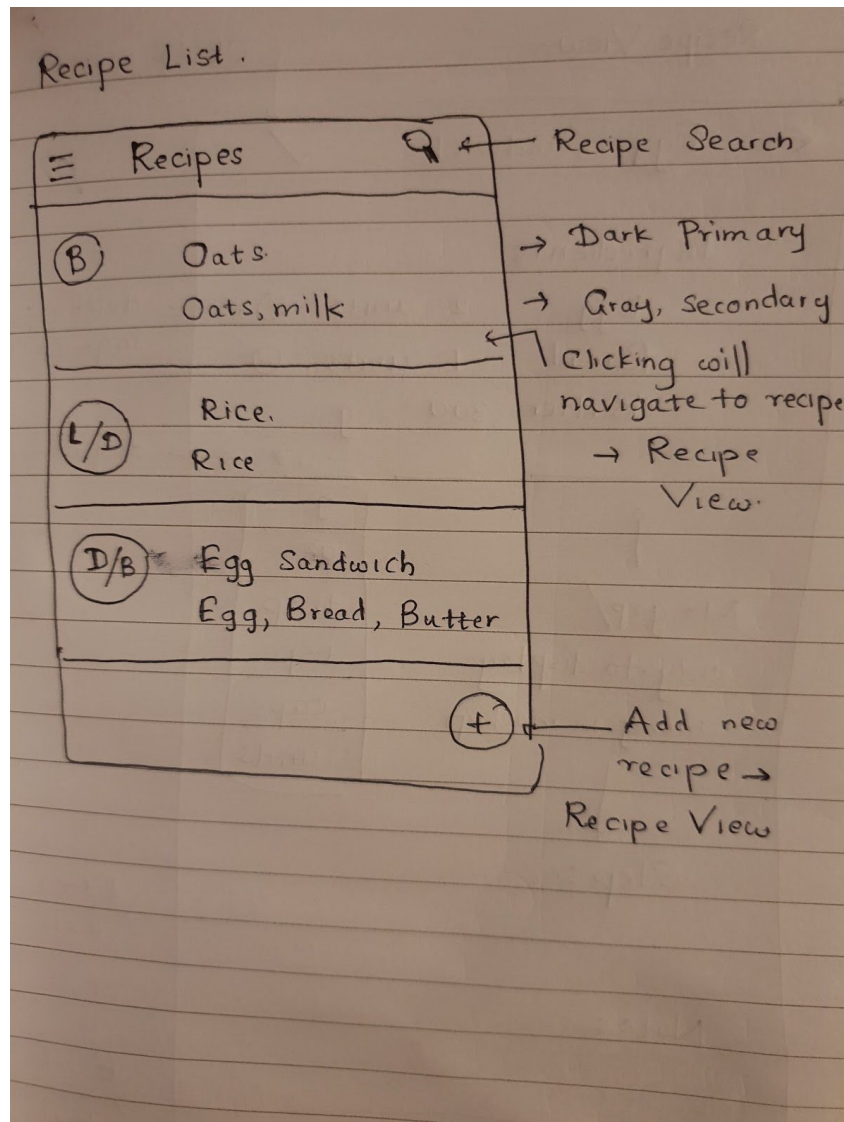 Recipe List.
Recipes
Recipe Search
B
Oats.
→ Dark Primary
Oats, milk
→ Gray, secondary
Clicking will
navigate to recipe
→ Recipe
View.
L/D
Rice.
Rice
D/B
Egg Sandwich
Egg, Bread, Butter
+
Add new
recipe →
Recipe View